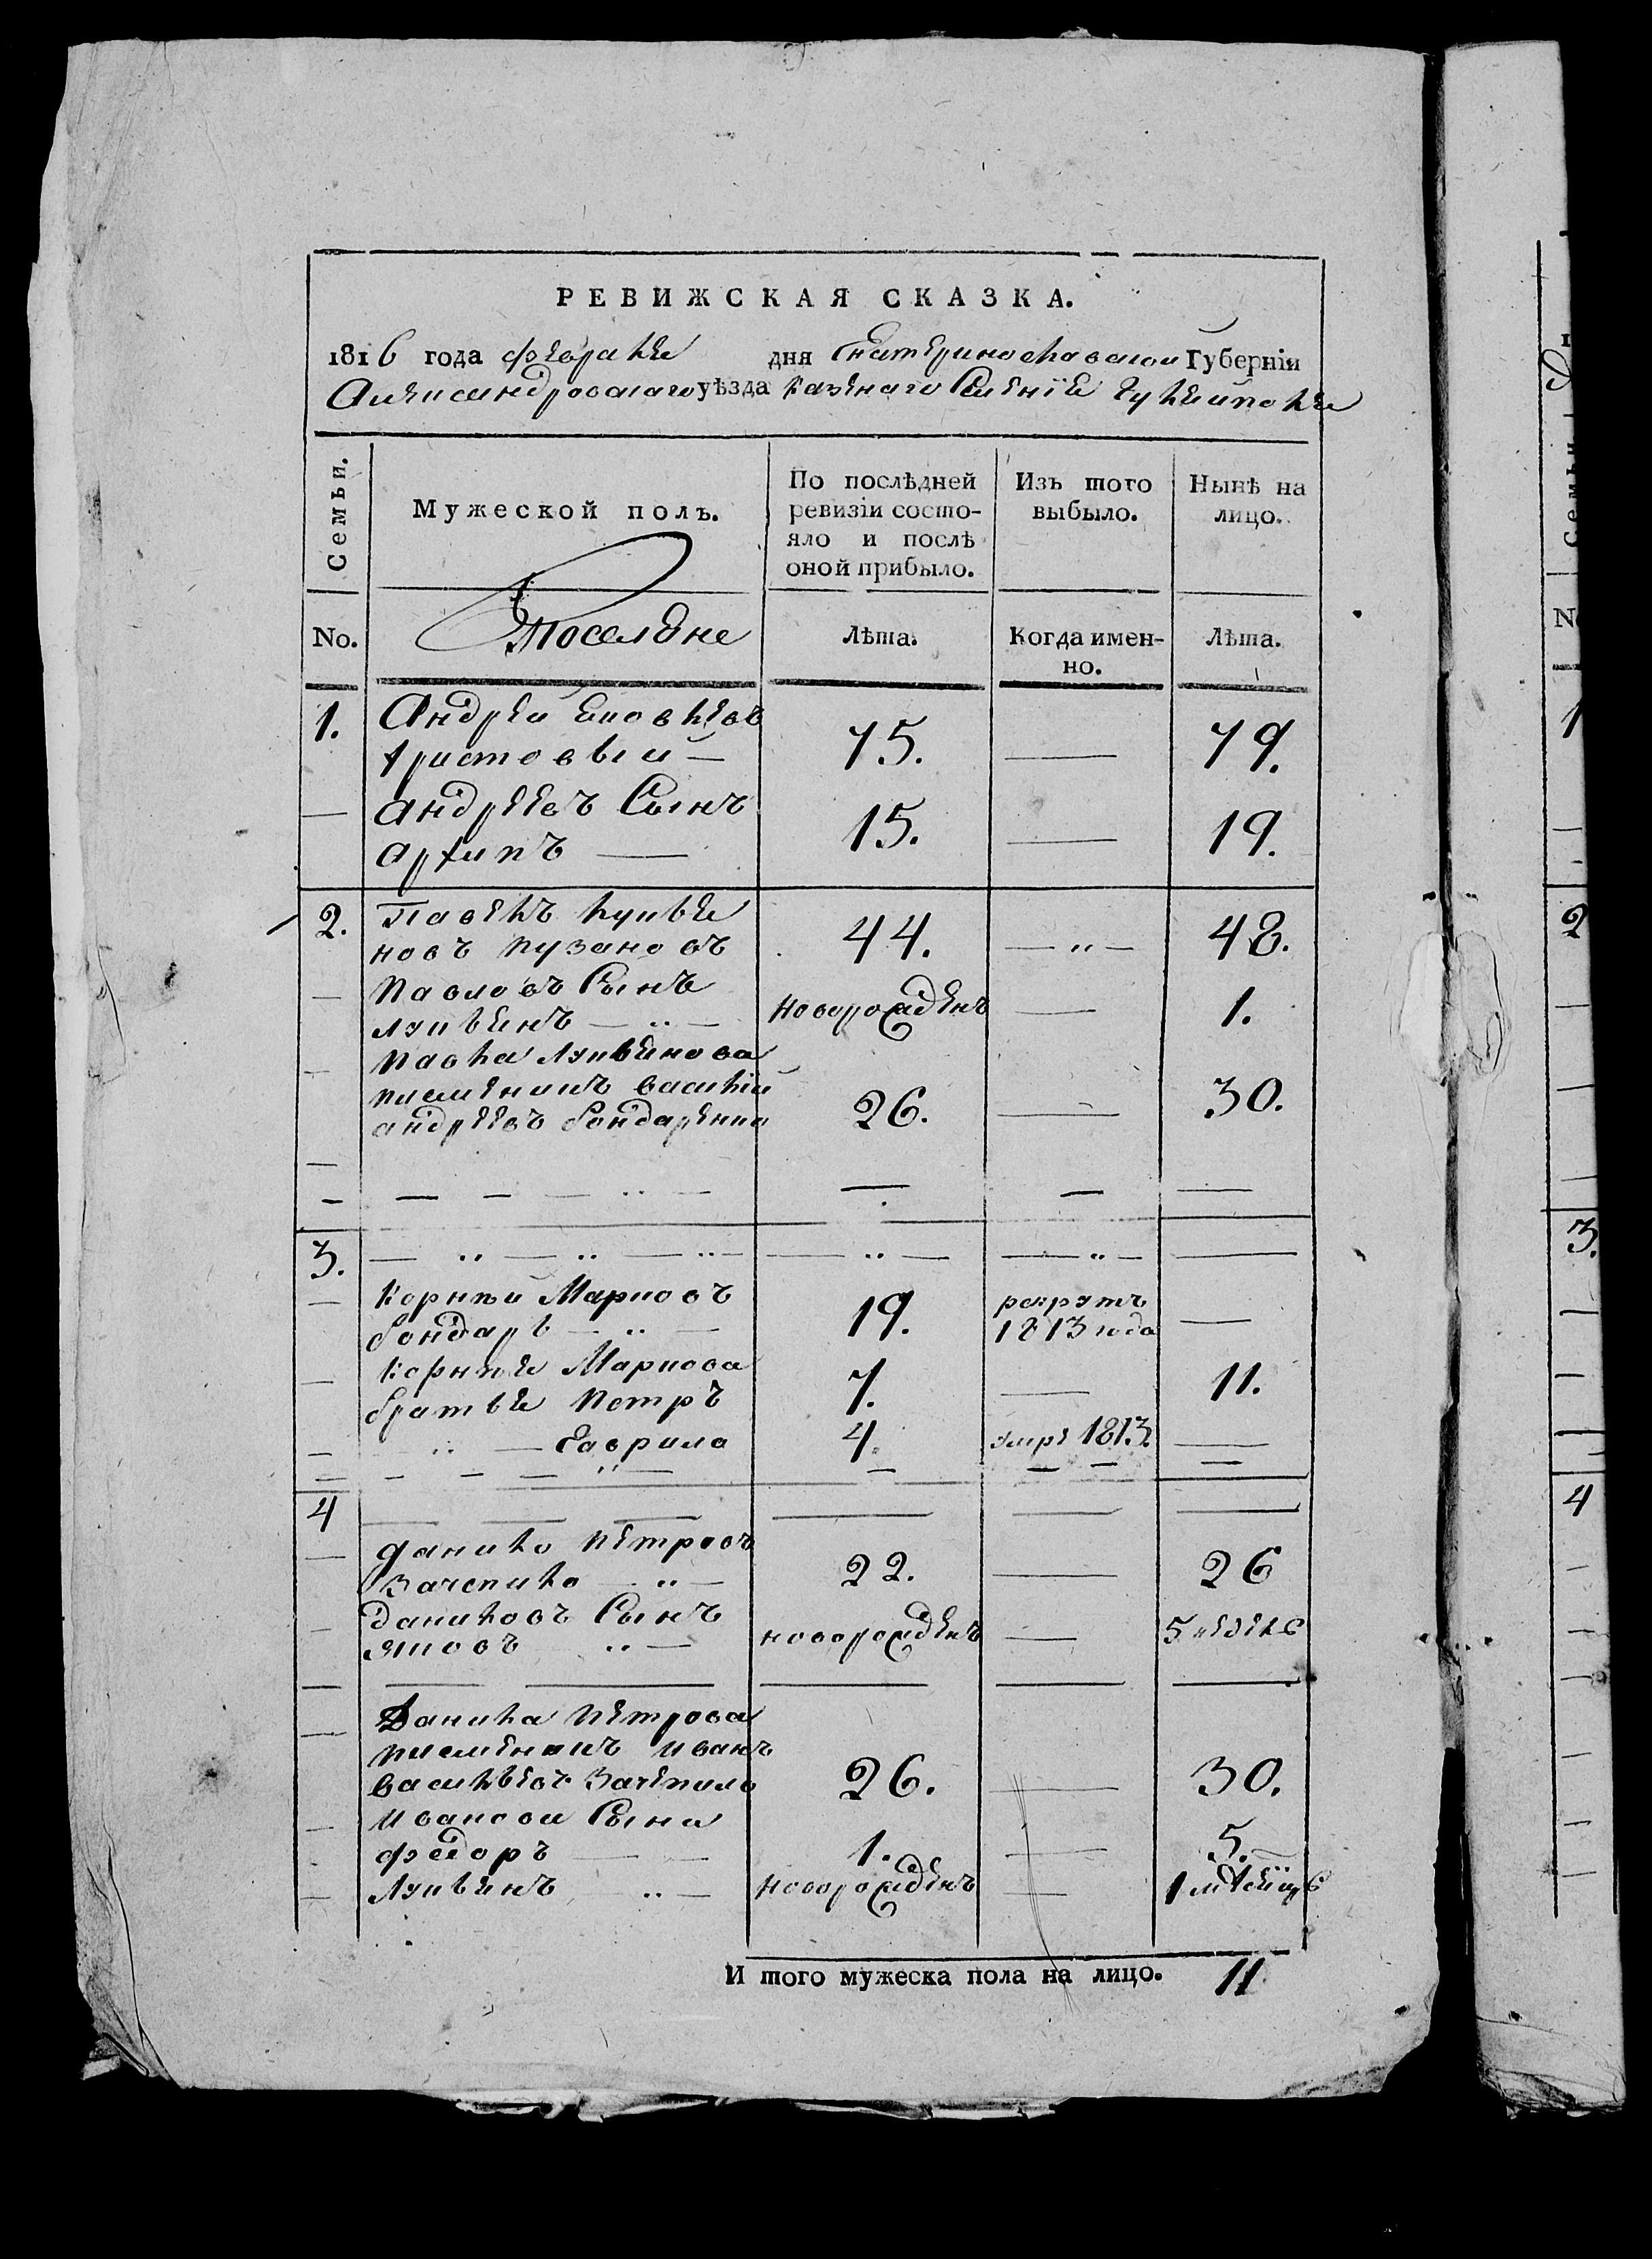 РЕВИЖСКАЯ СКАЗКА.
1816 года февраля дня Екатеринославской Губерніи
Александровскаго уѣзда казенаго Селенія Гуляйполя
Семьи.
Мужеской полъ.
По послѣдней
ревизіи состо-
яло и послѣ
оной прибыло.
Изъ того
выбыло.
Нынѣ на
лицо.
No.
Поселяне
Лѣта.
Когда имен-
но.
Лѣта.
1. Андрей
Христовый — 75. — 79.
— Андреевъ Сынъ
Архипъ — 15. — 19.
2. Павелъ Лукья
новъ Пузановъ 44. — 48.
— Павловъ Сынъ
Лукьянъ — новорожденъ — 1.
— Павла Лукьянова
племеникъ Василій
Андреевъ Бондаренко 26. — 30.
3.
— Корнѣй Марковъ
Бондарь — 19. рекрутъ
1813 года —
— Корнѣя Маркова
братья Петръ 7. — 11.
— Гаврила 4. умре 1813. —
4
— Данило Петровъ
Зачепило — 22. — 26
— Даниловъ Сынъ
Яковъ — новорожденъ — 5 недель
— Данила Петрова
племеникъ Иванъ
Васильевъ Зачепило 26. — 30.
— Ивановы Сыны
Федоръ — 1. — 5.
— Лукьянъ — новорожденъ — 1 месяць
И того мужеска пола на лицо. 11
No
1
2
3.
4